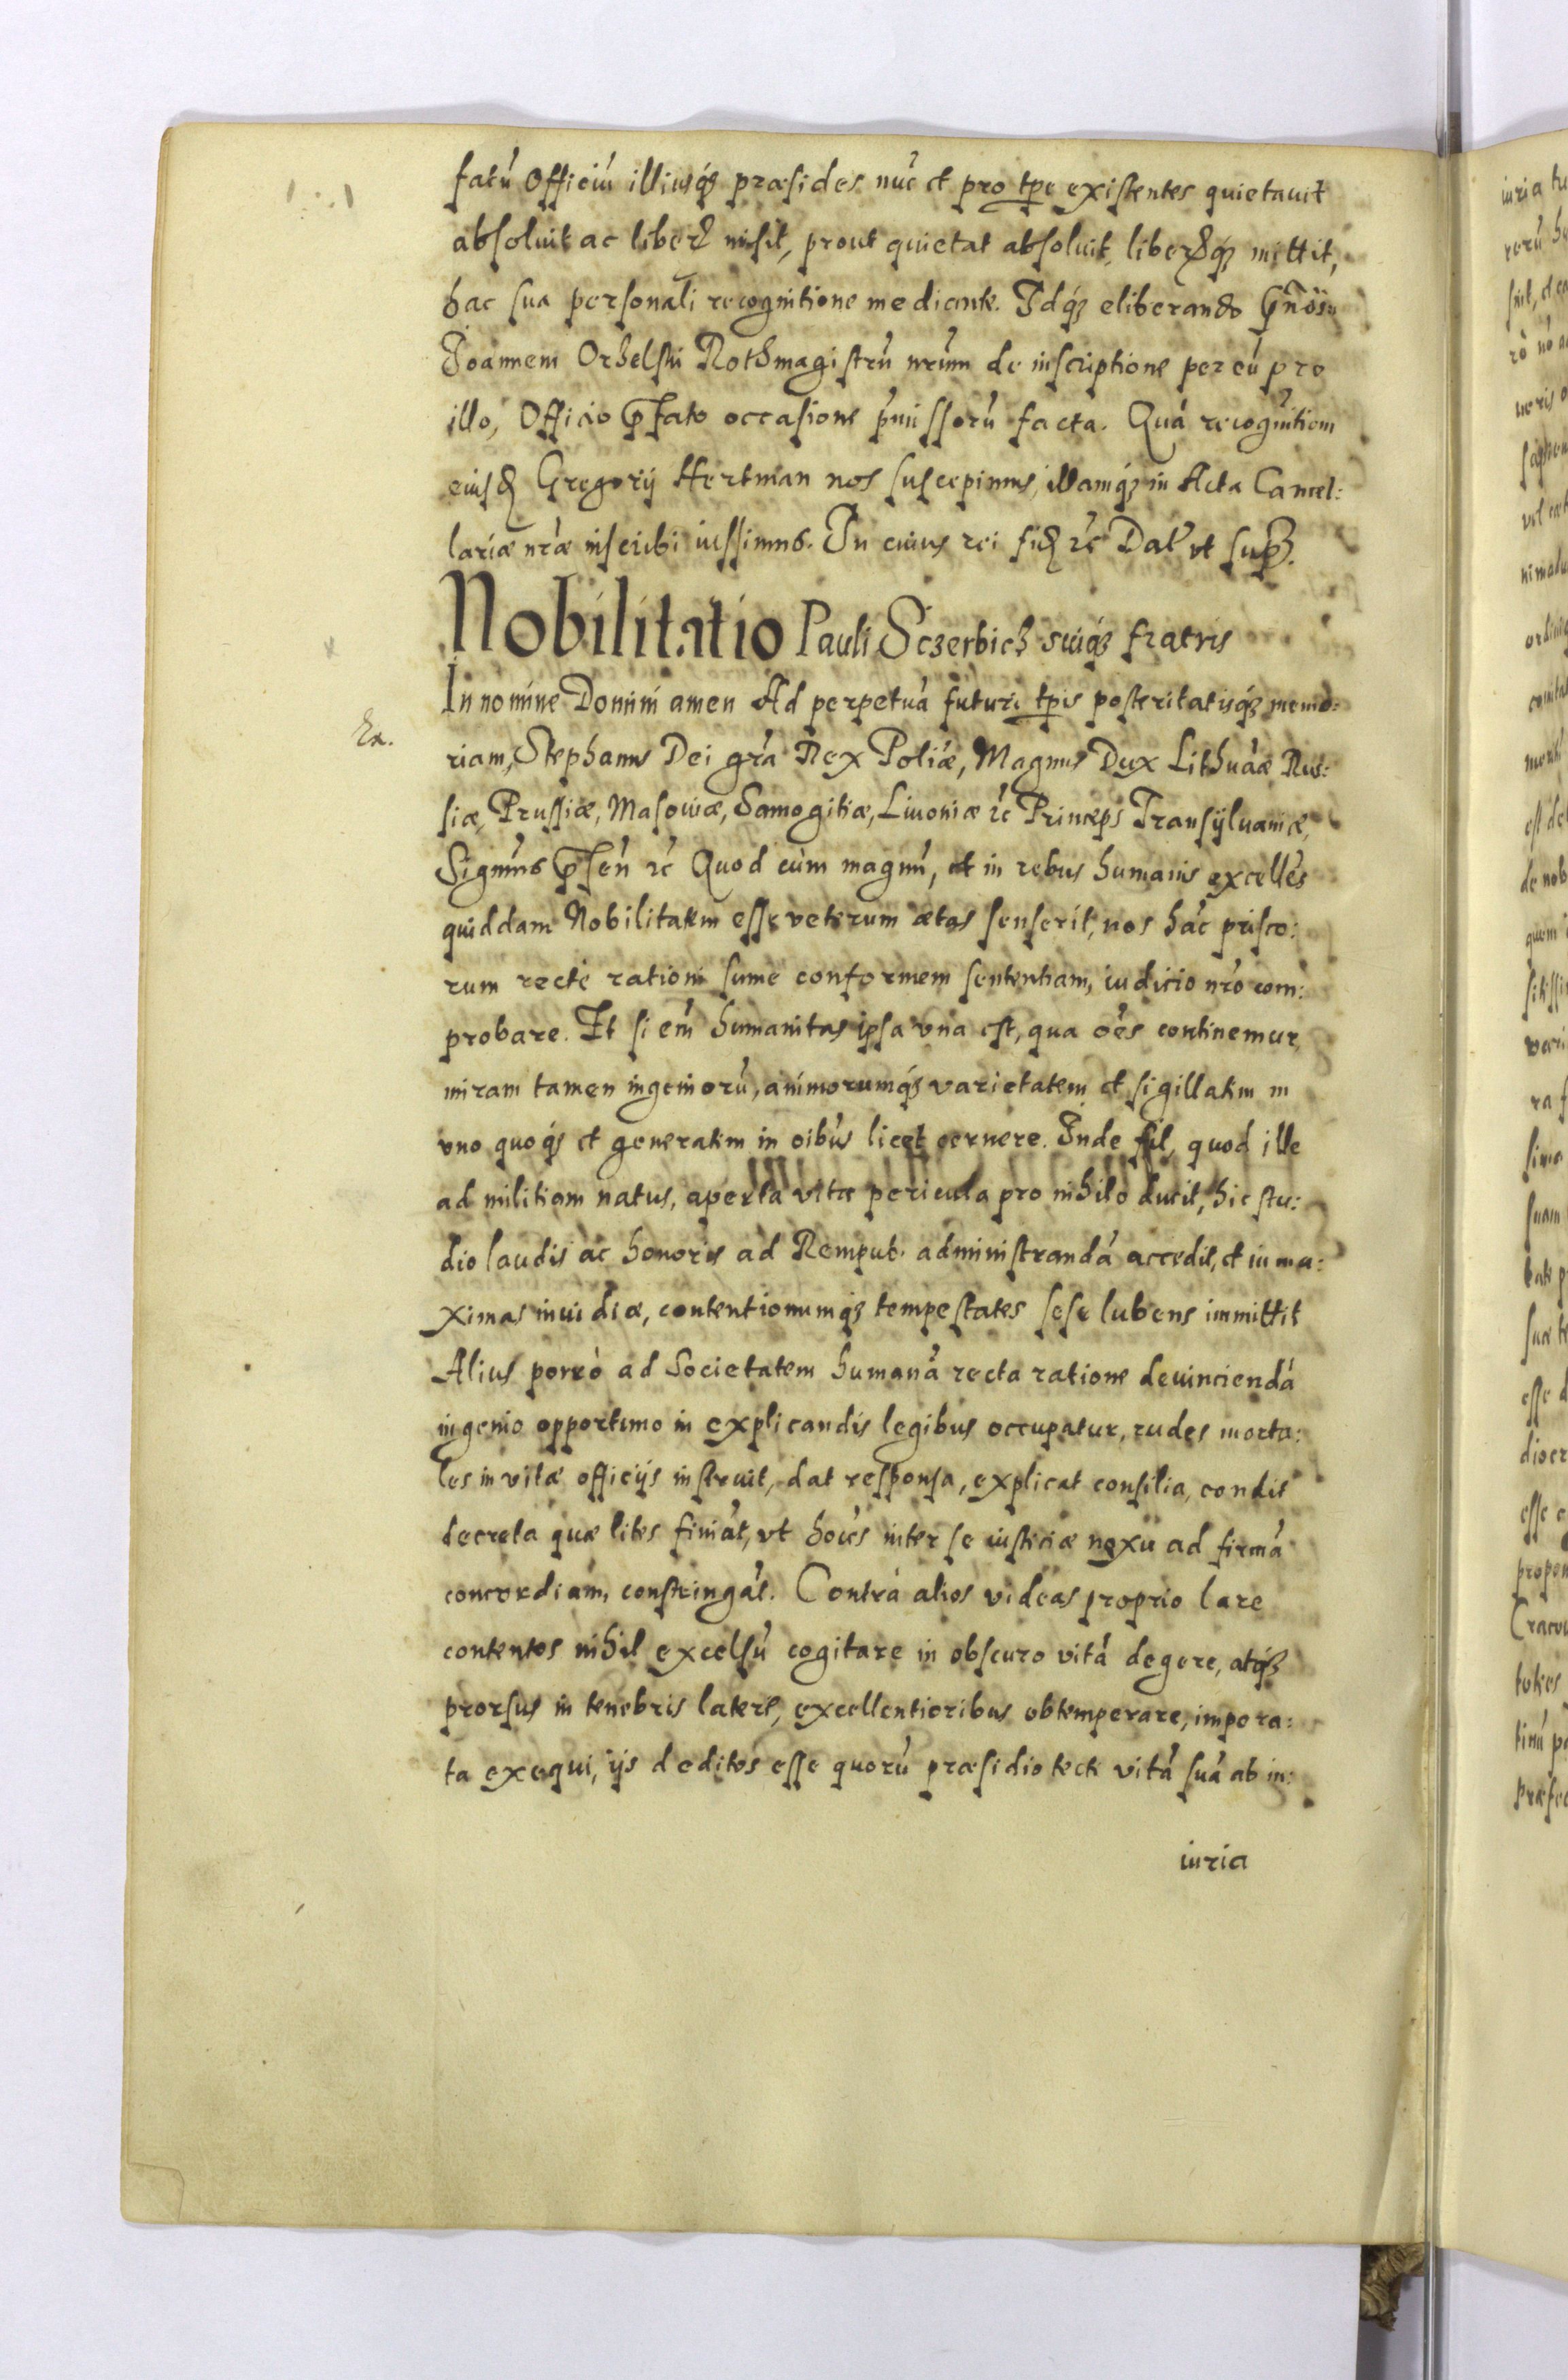 fatũ Officiũ illiusq́ȝ præsides nũc et pro tp̃e existentes quietauit
absoluit ac liberũ misit, prout quietat absoluit, liberũq́ȝ mittit,
hac sua personali recognitione mediante. Idq́ȝ eliberando Gñosũ
Joannem Orhelski Rothmagistrũ nrũm de inscriptione per eũ pro
illo, Officio p̃fato occasione p̃missorũ facta. Quã recognitiõm
eiusd̃ Gregorij Hertman nos suscepimus, illamq́ȝ in Acta Cancel:
lariæ nr̃æ inscribi iussimus. In cuius rei fid̃ ꝛc̃ Dat̃ vt supȝ.
Nobilitatio Pauli Sczerbicȝ suiq́ȝ fratris
In nomine Domini amen Ad perpetuã futuri tp̃is posteritatisq́ȝ memo:
Ex.
riam, Stephanus Dei gr̃a Rex Poliæ, Magnus Dux Lithuãæ Rus:
siæ, Prussiæ, Masouiæ, Samogitiæ, Liuoniæ ꝛc Princeps Transÿluaniæ,
Sigm̃us p̃sen̄ ꝛc̃ Quod cùm magnũ, et in rebus humanis excellẽs
quiddam Nobilitatem esse veterum ætas senserit, nos hãc prisco:
rum rectè rationi sume conformem sententiam, iudicio nr̃o com:
probare. Et si em̃ humanitas ipsa vna est, qua oẽs continemur,
miram tamen ingeniorũ, animorumq́ȝ varietatem et sigillatim in
vno quoq́ȝ et generatim in oĩbus licet cernere. Inde fit, quod ille
ad militiam natus, aperta vitæ pericula pro nihilo ducit, hic stu:
dio laudis ac honoris ad Rempub. administrandã accedit, et in ma:
ximas inuidiæ, contentionumq́ȝ tempestates sese lubens immittit
Alius porrò ad Societatem humanã recta ratione deuinciendã
ingenio opportuno in explicandis legibus occupatur, rudes morta:
les in vitæ officijs instruit, dat responsa, explicat consilia, condit
decreta quæ lites finiãt, vt hoĩes inter se iusticiæ nexu ad firmã
concordiam, constringãt. Contrà alios videas proprio lare
contentos nihil excelsũ cogitare in obscuro vitã degere, atq́ȝ
prorsus in tenebris latere, excellentioribus obtemperare, impera:
ta exequi, ijs deditos esse quorũ præsidio tecti vitã suã ab in:
iuria